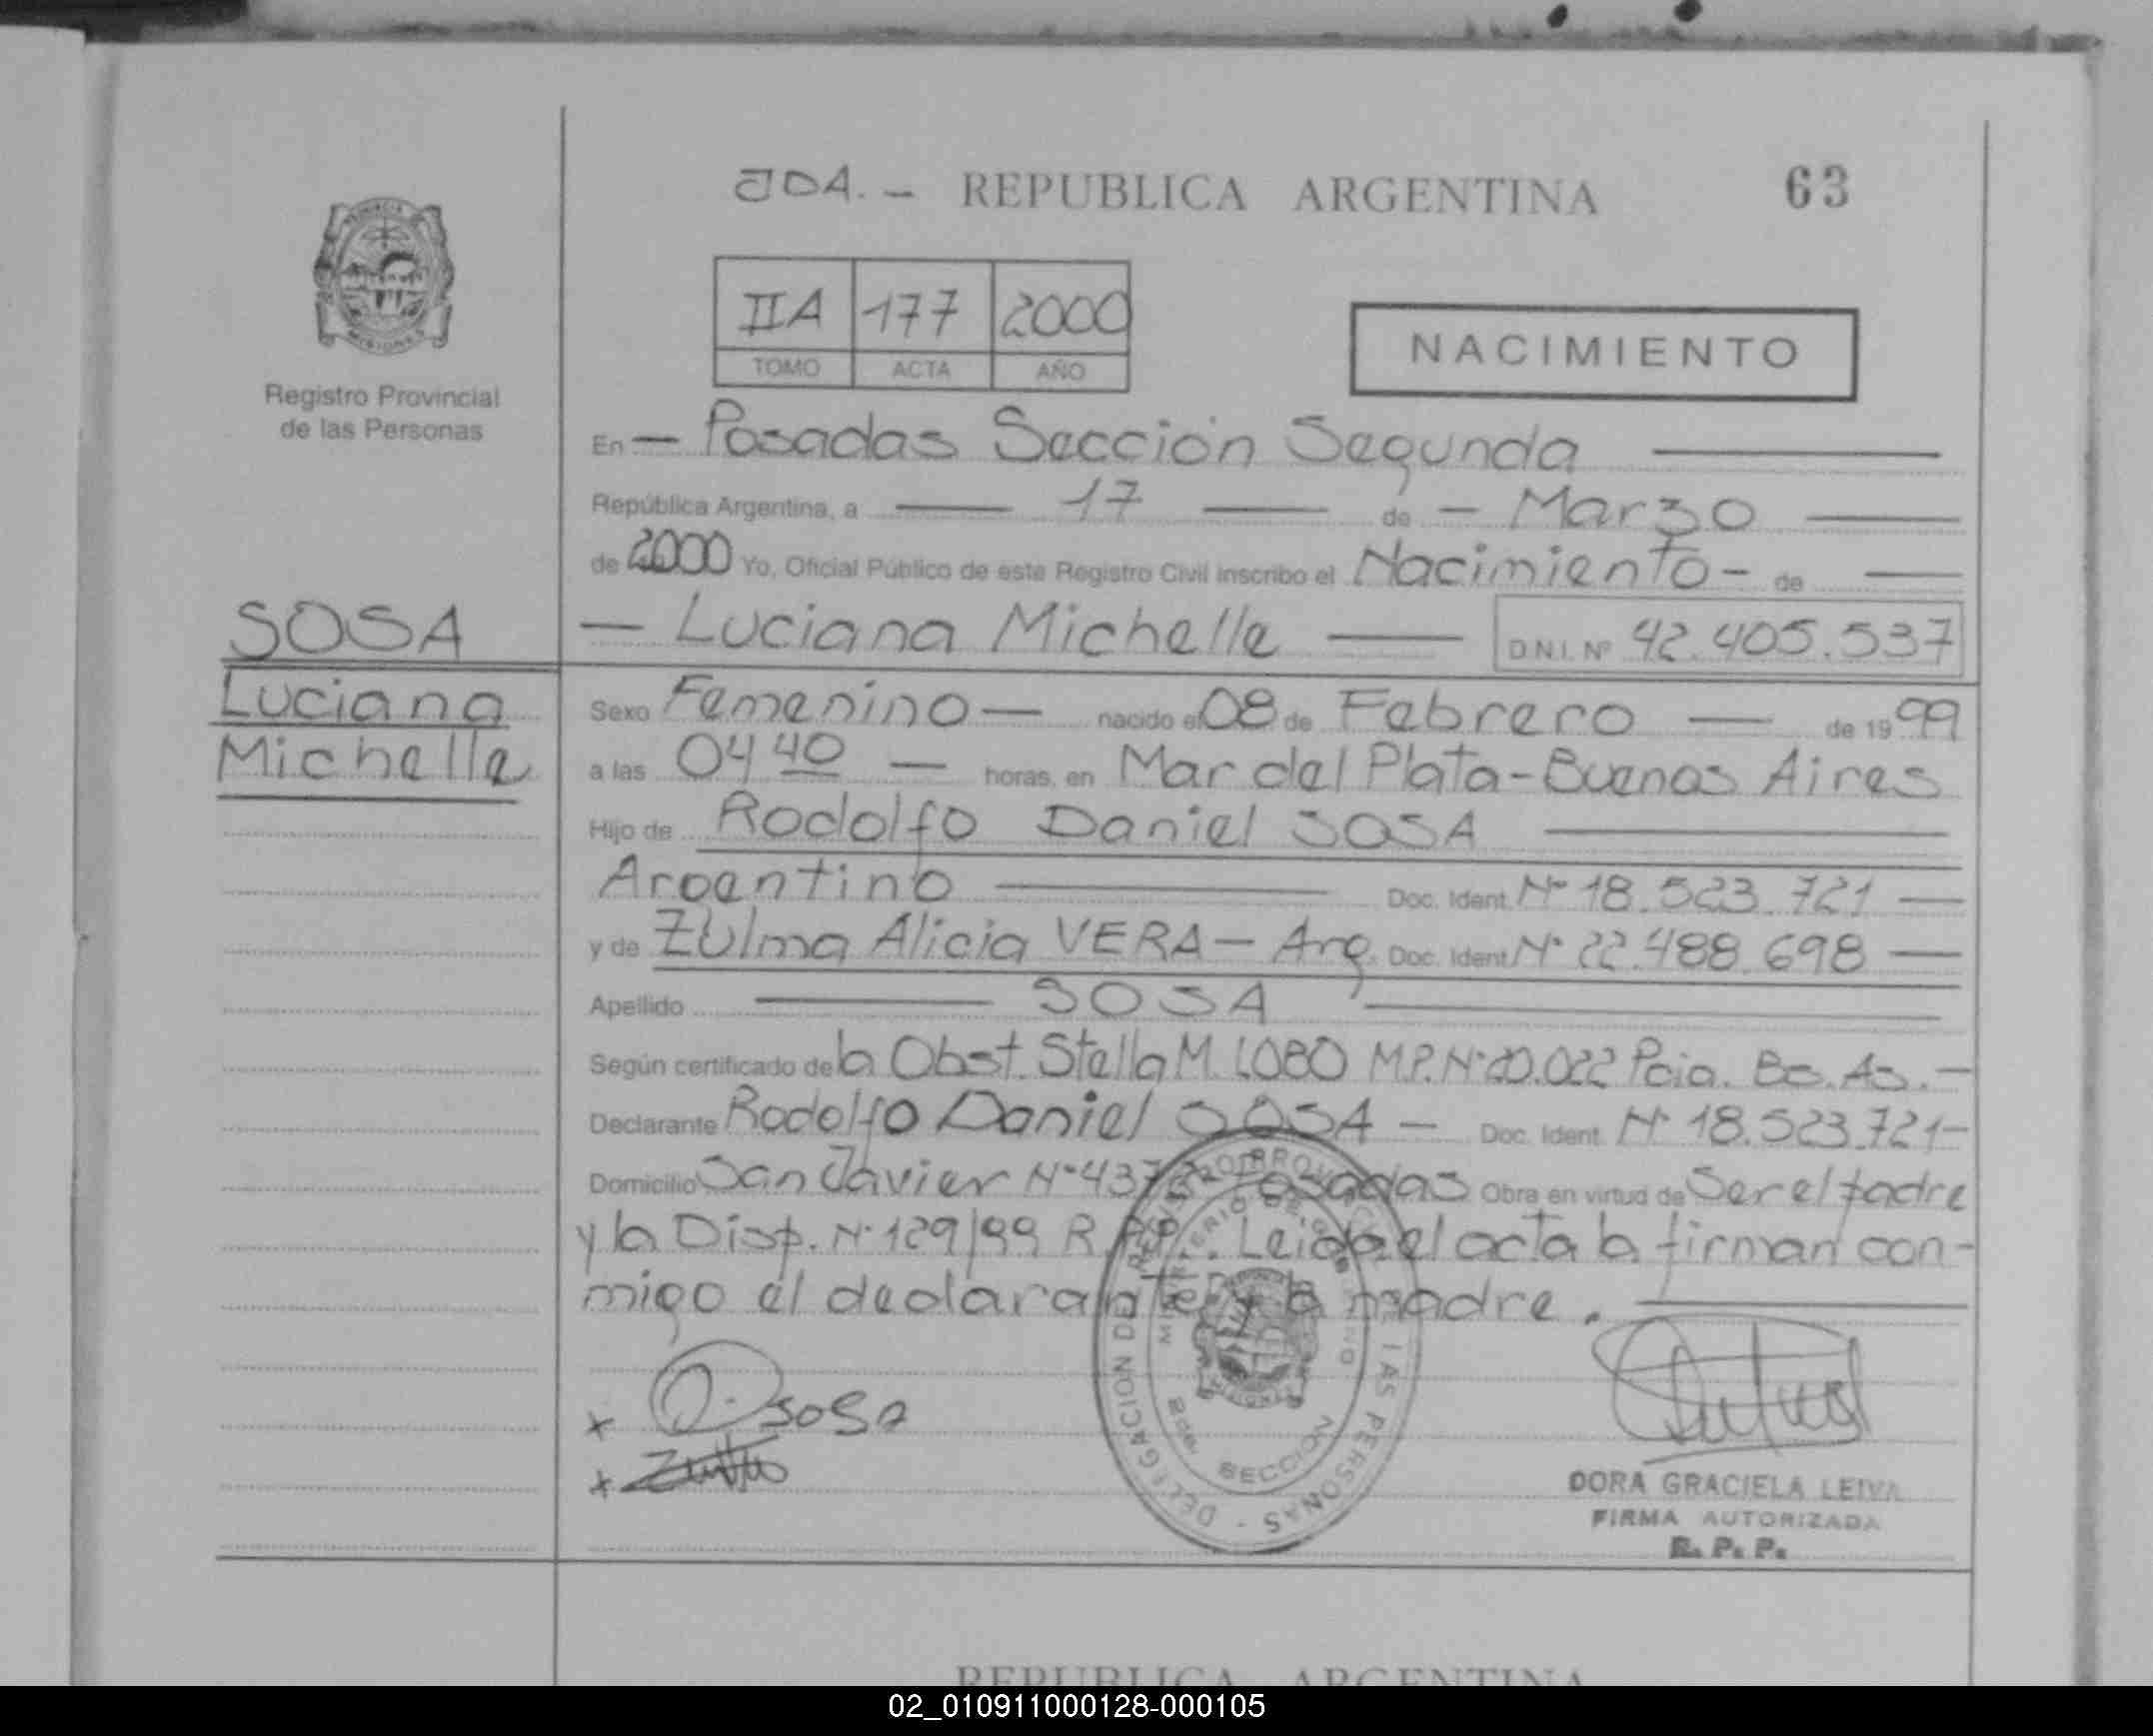 JDA. - REPUBLICA ARGENTINA 63
IIA 177 2000
TOMO ACTA AÑO
NACIMIENTO
PROVINCIA
MISIONES
Registro Provincial
de las Personas
En — Posadas Sección Segunda —
República Argentina, a — 17 — de — Marzo —
de 2000 Yo, Oficial Público de este Registro Civil inscribo el Nacimiento - de —
— Luciana Michelle — D.N.I. Nº 42.405.537
SOSA
Luciana
Michelle
Sexo Femenino — nacido el 08 de Febrero — de 1999
a las 04 40 — horas, en Mar del Plata - Buenos Aires
Hijo de Rodolfo Daniel SOSA —
Argentino — Doc. Ident. Nº 18.523.721 —
y de Zulma Alicia VERA — Arg. Doc. Ident. Nº 22.488.698 —
Apellido — SOSA —
Según certificado de la Obst. Stella M. LOBO M.P. Nº 20.022 Pcia. Bs. As. —
Declarante Rodolfo Daniel SOSA — Doc. Ident. Nº 18.523.721 -
Domicilio San Javier Nº Posadas Obra en virtud de Ser el padre
y la Disp. Nº 129/99 R.P.P. Leída el acta la firman con-
migo el declarante y la madre. —
DELEGACION DEL REGISTRO PROVINCIAL DE LAS PERSONAS -
MINISTERIO DE GOBIERNO
2da. SECCION
x Sosa
x
DORA GRACIELA LEIVA
FIRMA AUTORIZADA
R. P. P.
REPUBLICA ARGENTINA
02_010911000128-000105